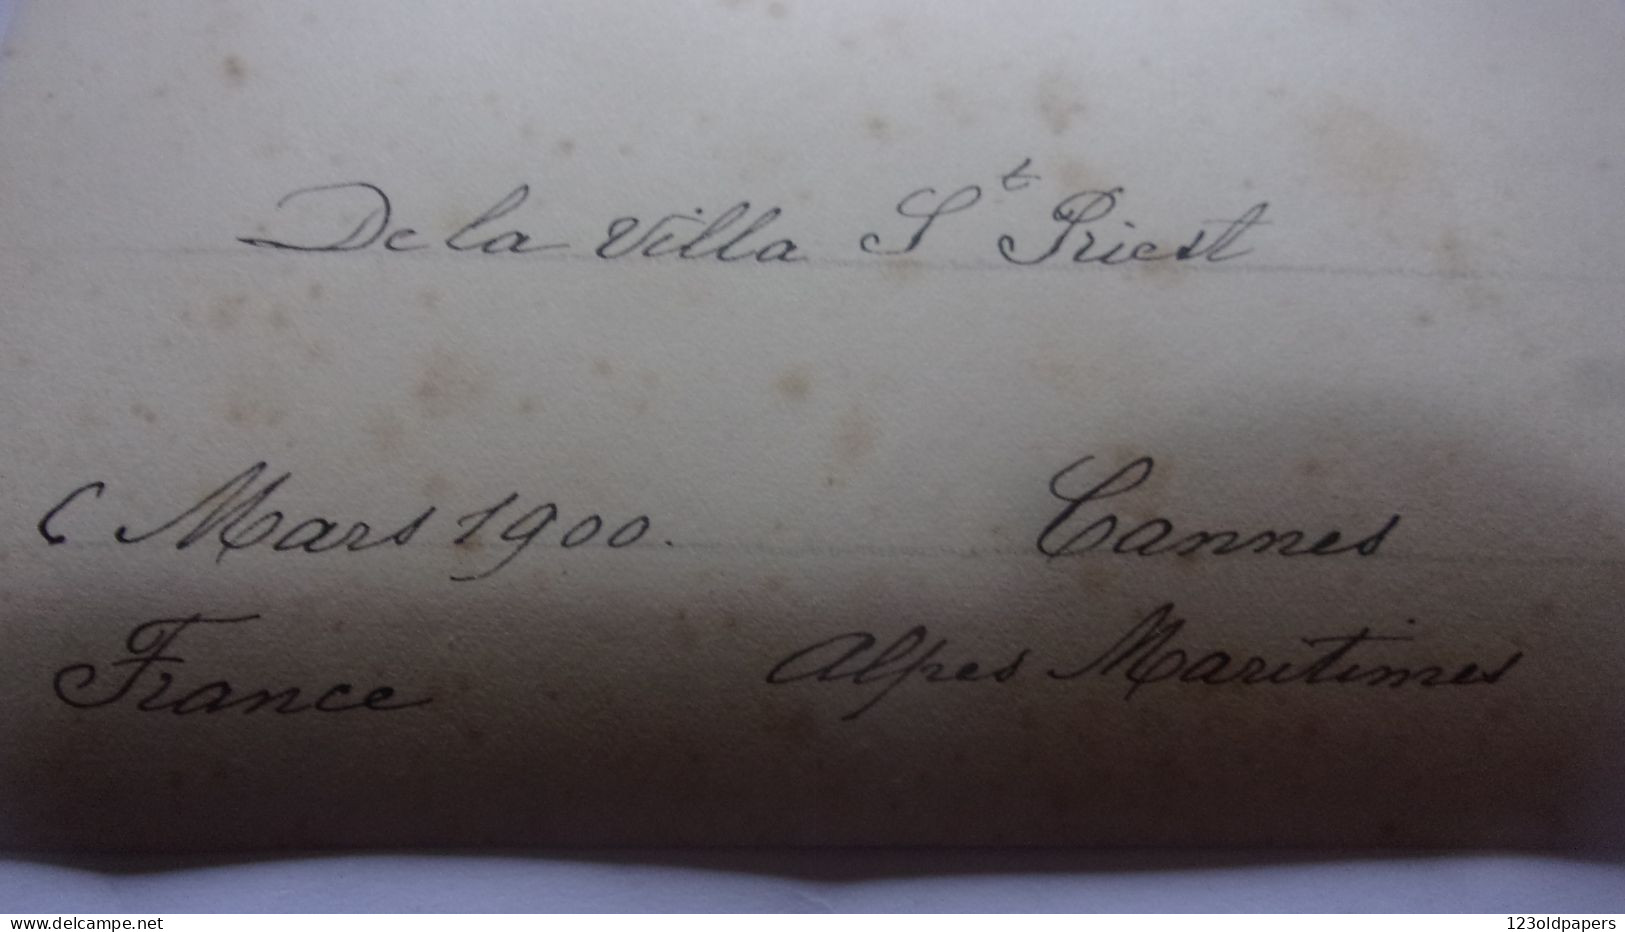 De la Villa St Priest
( Mars 1900. Cannes
France Alpes Maritimes
www.delcampe.net 123oldpapers